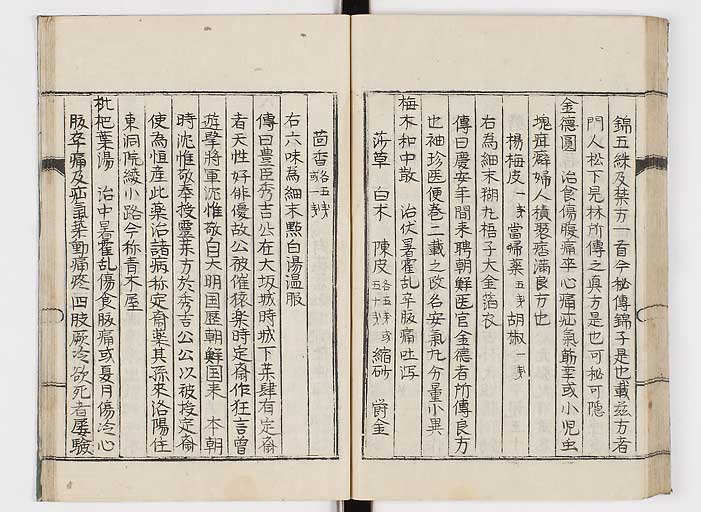 錦五絲及禁方一首今秘傳錦子是也載玆方者
門人松下見林所傳之真方是也可秘可隱
金德圓 治食傷腹痛卒心痛疝氣動氣或小児虫
塊并癖婦人積聚痞滿良方也
楊梅皮一匁 當帰葉五匁 胡椒一匁
右為細末糊丸梧子大金箔衣
傳曰慶安年間来聘朝鮮医官金德者所傳良方
也袖珍医便巻二載之改名安氣丸分量小異
梅木和中散 治伏暑霍乱卒腹痛吐泻
莎草 白朮 陳皮各五匁或五十匁 縮砂 欝金
茴香各五匁或一匁
右六味為細末點白湯温服
傳曰豊臣秀吉公在大坂城時城下薬肆有定斎
者天性好俳優故公被催猿楽時定斎作狂言曾
遊撃將軍沈惟敬自大明国歴朝鮮国来 本朝
時沈惟敬奉授靈薬方於秀吉公公以被授定斎
使為恒産此薬治諸病称定斎薬其孫来洛陽住
東洞院綾小路今称青木屋
枇杷葉湯 治中暑霍乱傷食腹痛或夏月傷冷心
腹卒痛及疝氣築動痛疼四肢厥冷欲死者屢驗